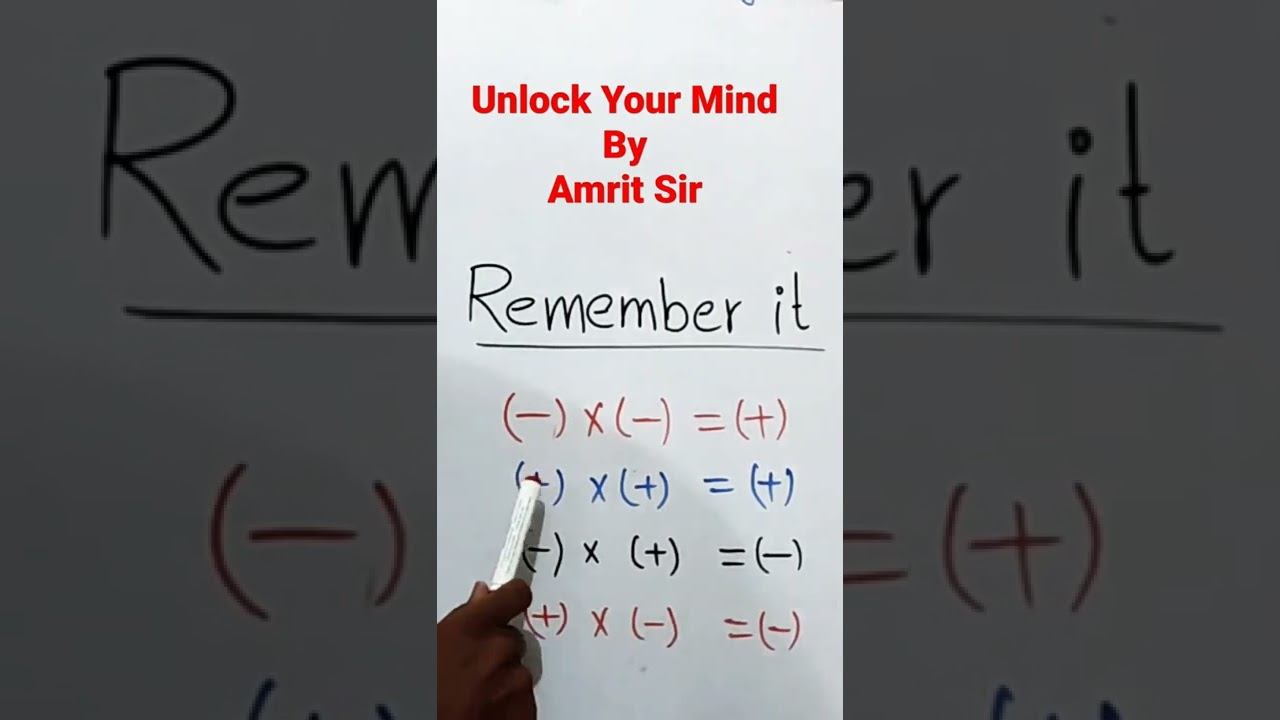 Unlock Your Mind
By
Amrit Sir
Remember it
(-) x (-) = (+)
(+) x (+) = (+)
(-) x (+) = (-)
(+) x (-) = (-)